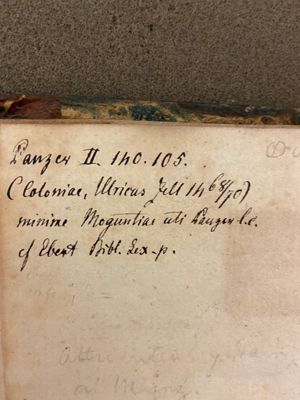 Panzer II. 140. 105.
(Coloniae, Ulricus Zell 146 8/70)
minime Moguntiae uti Panzer l.c.
cf Ebert Bibl. Lex. p.
Attributed